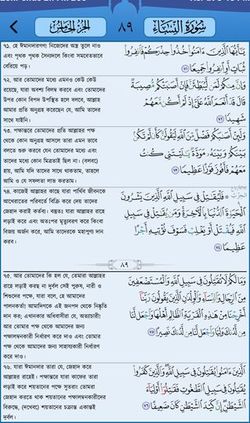 سورة النساء
٨٩
الجزء الخامس
৭১. হে ঈমানদারগণ! নিজেদের অস্ত্র তুলে নাও
এবং পৃথক পৃথক সৈন্যদলে কিংবা সমবেতভাবে
বেরিয়ে পড়।
يَٰٓأَيُّهَا ٱلَّذِينَ ءَامَنُواْ خُذُواْ حِذۡرَكُمۡ فَٱنفِرُواْ
ثُبَاتٍ أَوِ ٱنفِرُواْ جَمِيعٗا ٧١
৭২. আর তোমাদের মধ্যে এমনও কেউ কেউ
রয়েছে, যারা অবশ্য বিলম্ব করবে এবং তোমাদের
উপর কোন বিপদ উপস্থিত হলে বলবে, আল্লাহ
আমার প্রতি অনুগ্রহ করেছেন যে, আমি তাদের
সাথে যাইনি।
وَإِنَّ مِنكُمۡ لَمَن لَّيُبَطِّئَنَّ فَإِنۡ أَصَٰبَتۡكُم مُّصِيبَةٞ
قَالَ قَدۡ أَنۡعَمَ ٱللَّهُ عَلَيَّ إِذۡ لَمۡ أَكُن مَّعَهُمۡ
شَهِيدٗا ٧٢
৭৩. পক্ষান্তরে তোমাদের প্রতি আল্লাহর পক্ষ
থেকে কোন অনুগ্রহ আসলে তারা এমন ভাবে
বলতে শুরু করবে যেন তোমাদের মধ্যে এবং
তাদের মধ্যে কোন মিত্রতাই ছিল না। (বলবে)
হায়, আমি যদি তাদের সাথে থাকতাম, তাহলে
আমি ও যে সফলতা লাভ করতাম।
وَلَئِنۡ أَصَٰبَكُمۡ فَضۡلٞ مِّنَ ٱللَّهِ لَيَقُولَنَّ كَأَن لَّمۡ تَكُنۢ
بَيۡنَكُمۡ وَبَيۡنَهُۥ مَوَدَّةٞ يَٰلَيۡتَنِي كُنتُ
مَعَهُمۡ فَأَفُوزَ فَوۡزًا عَظِيمٗا ٧٣
৭৪. কাজেই আল্লাহর কাছে যারা পার্থিব জীবনকে
আখেরাতের পরিবর্তে বিক্রি করে দেয় তাদের
জেহাদ করাই কর্তব্য। বস্তুতঃ যারা আল্লাহর রাহে
লড়াই করে এবং অতঃপর মৃত্যুবরণ করে কিংবা
বিজয় অর্জন করে, আমি তাদেরকে মহাপুণ্য দান
করব।
فَلۡيُقَٰتِلۡ فِي سَبِيلِ ٱللَّهِ ٱلَّذِينَ يَشۡرُونَ
ٱلۡحَيَوٰةَ ٱلدُّنۡيَا بِٱلۡأٓخِرَةِۚ وَمَن يُقَٰتِلۡ فِي سَبِيلِ
ٱللَّهِ فَيُقۡتَلۡ أَوۡ يَغۡلِبۡ فَسَوۡفَ نُؤۡتِيهِ أَجۡرًا
عَظِيمٗا ٧٤
٨٩
৭৫. আর তোমাদের কি হল যে, তোমরা আল্লাহর
রাহে লড়াই করছ না দুর্বল সেই পুরুষ, নারী ও
শিশুদের পক্ষে, যারা বলে, হে আমাদের
পালনকর্তা! আমাদিগকে এই জনপদ থেকে নিষ্কৃতি
দান কর; এখানকার অধিবাসীরা যে, অত্যাচারী!
আর তোমার পক্ষ থেকে আমাদের জন্য
পক্ষালম্বনকারী নির্ধারণ করে দাও এবং তোমার
পক্ষ থেকে আমাদের জন্য সাহায্যকারী নির্ধারণ
করে দাও।
وَمَا لَكُمۡ لَا تُقَٰتِلُونَ فِي سَبِيلِ ٱللَّهِ وَٱلۡمُسۡتَضۡعَفِينَ
مِنَ ٱلرِّجَالِ وَٱلنِّسَآءِ وَٱلۡوِلۡدَٰنِ ٱلَّذِينَ يَقُولُونَ رَبَّنَآ
أَخۡرِجۡنَا مِنۡ هَٰذِهِ ٱلۡقَرۡيَةِ ٱلظَّالِمِ أَهۡلُهَا وَٱجۡعَل لَّنَا
مِن لَّدُنكَ وَلِيّٗا وَٱجۡعَل لَّنَا مِن لَّدُنكَ نَصِيرًا ٧٥
৭৬. যারা ঈমানদার তারা যে, জেহাদ করে
আল্লাহর রাহেই। পক্ষান্তরে যারা কাফের তারা
লড়াই করে শয়তানের পক্ষে সুতরাং তোমরা
জেহাদ করতে থাক শয়তানের পক্ষালম্বনকারীদের
বিরুদ্ধে, (দেখবে) শয়তানের চক্রান্ত একান্তই
দুর্বল।
ٱلَّذِينَ ءَامَنُواْ يُقَٰتِلُونَ فِي سَبِيلِ ٱللَّهِۖ وَٱلَّذِينَ كَفَرُواْ
يُقَٰتِلُونَ فِي سَبِيلِ ٱلطَّٰغُوتِ فَقَٰتِلُوٓاْ أَوۡلِيَآءَ
ٱلشَّيۡطَٰنِۖ إِنَّ كَيۡدَ ٱلشَّيۡطَٰنِ كَانَ ضَعِيفًا ٧٦